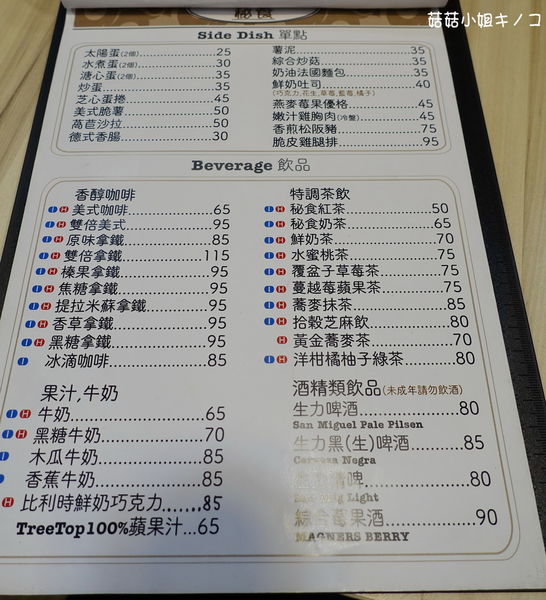 菇菇小姐キノコ
秘食
Side Dish 單點
太陽蛋(2個)............25
水煮蛋(2個)............30
溏心蛋(2個)............35
炒蛋............35
芝心蛋捲............45
美式脆薯............50
萵苣沙拉............50
德式香腸............30
薯泥............35
綜合炒菇............35
奶油法國麵包............35
鮮奶吐司............40
(巧克力,花生,草莓,藍莓,橘子)
燕麥莓果優格............45
嫩汁雞胸肉(冷盤)............45
香煎松阪豬............75
脆皮雞腿排............95
Beverage 飲品
香醇咖啡
I H 美式咖啡............65
I H 雙倍美式............95
I H 原味拿鐵............85
I H 雙倍拿鐵............115
I H 榛果拿鐵............95
I H 焦糖拿鐵............95
I H 提拉米蘇拿鐵............95
I H 香草拿鐵............95
I H 黑糖拿鐵............95
I 冰滴咖啡............85
果汁,牛奶
I H 牛奶............65
I H 黑糖牛奶............70
I 木瓜牛奶............85
香蕉牛奶............85
H 比利時鮮奶巧克力.......85
TreeTop100%蘋果汁...65
特調茶飲
I H 秘食紅茶............50
I H 秘食奶茶............65
I H 鮮奶茶............70
I H 水蜜桃茶............75
I H 覆盆子草莓茶............75
I H 蔓越莓蘋果茶............75
I H 蕎麥抹茶............85
I H 拾穀芝麻飲............80
H 黃金蕎麥茶............70
I H 洋柑橘柚子綠茶............80
酒精類飲品(未成年請勿飲酒)
生力啤酒............80
San Miguel Pale Pilsen
生力黑(生)啤酒............85
Cerveza Negra
啤............80
Light
綜合莓果酒............90
MAGNERS BERRY